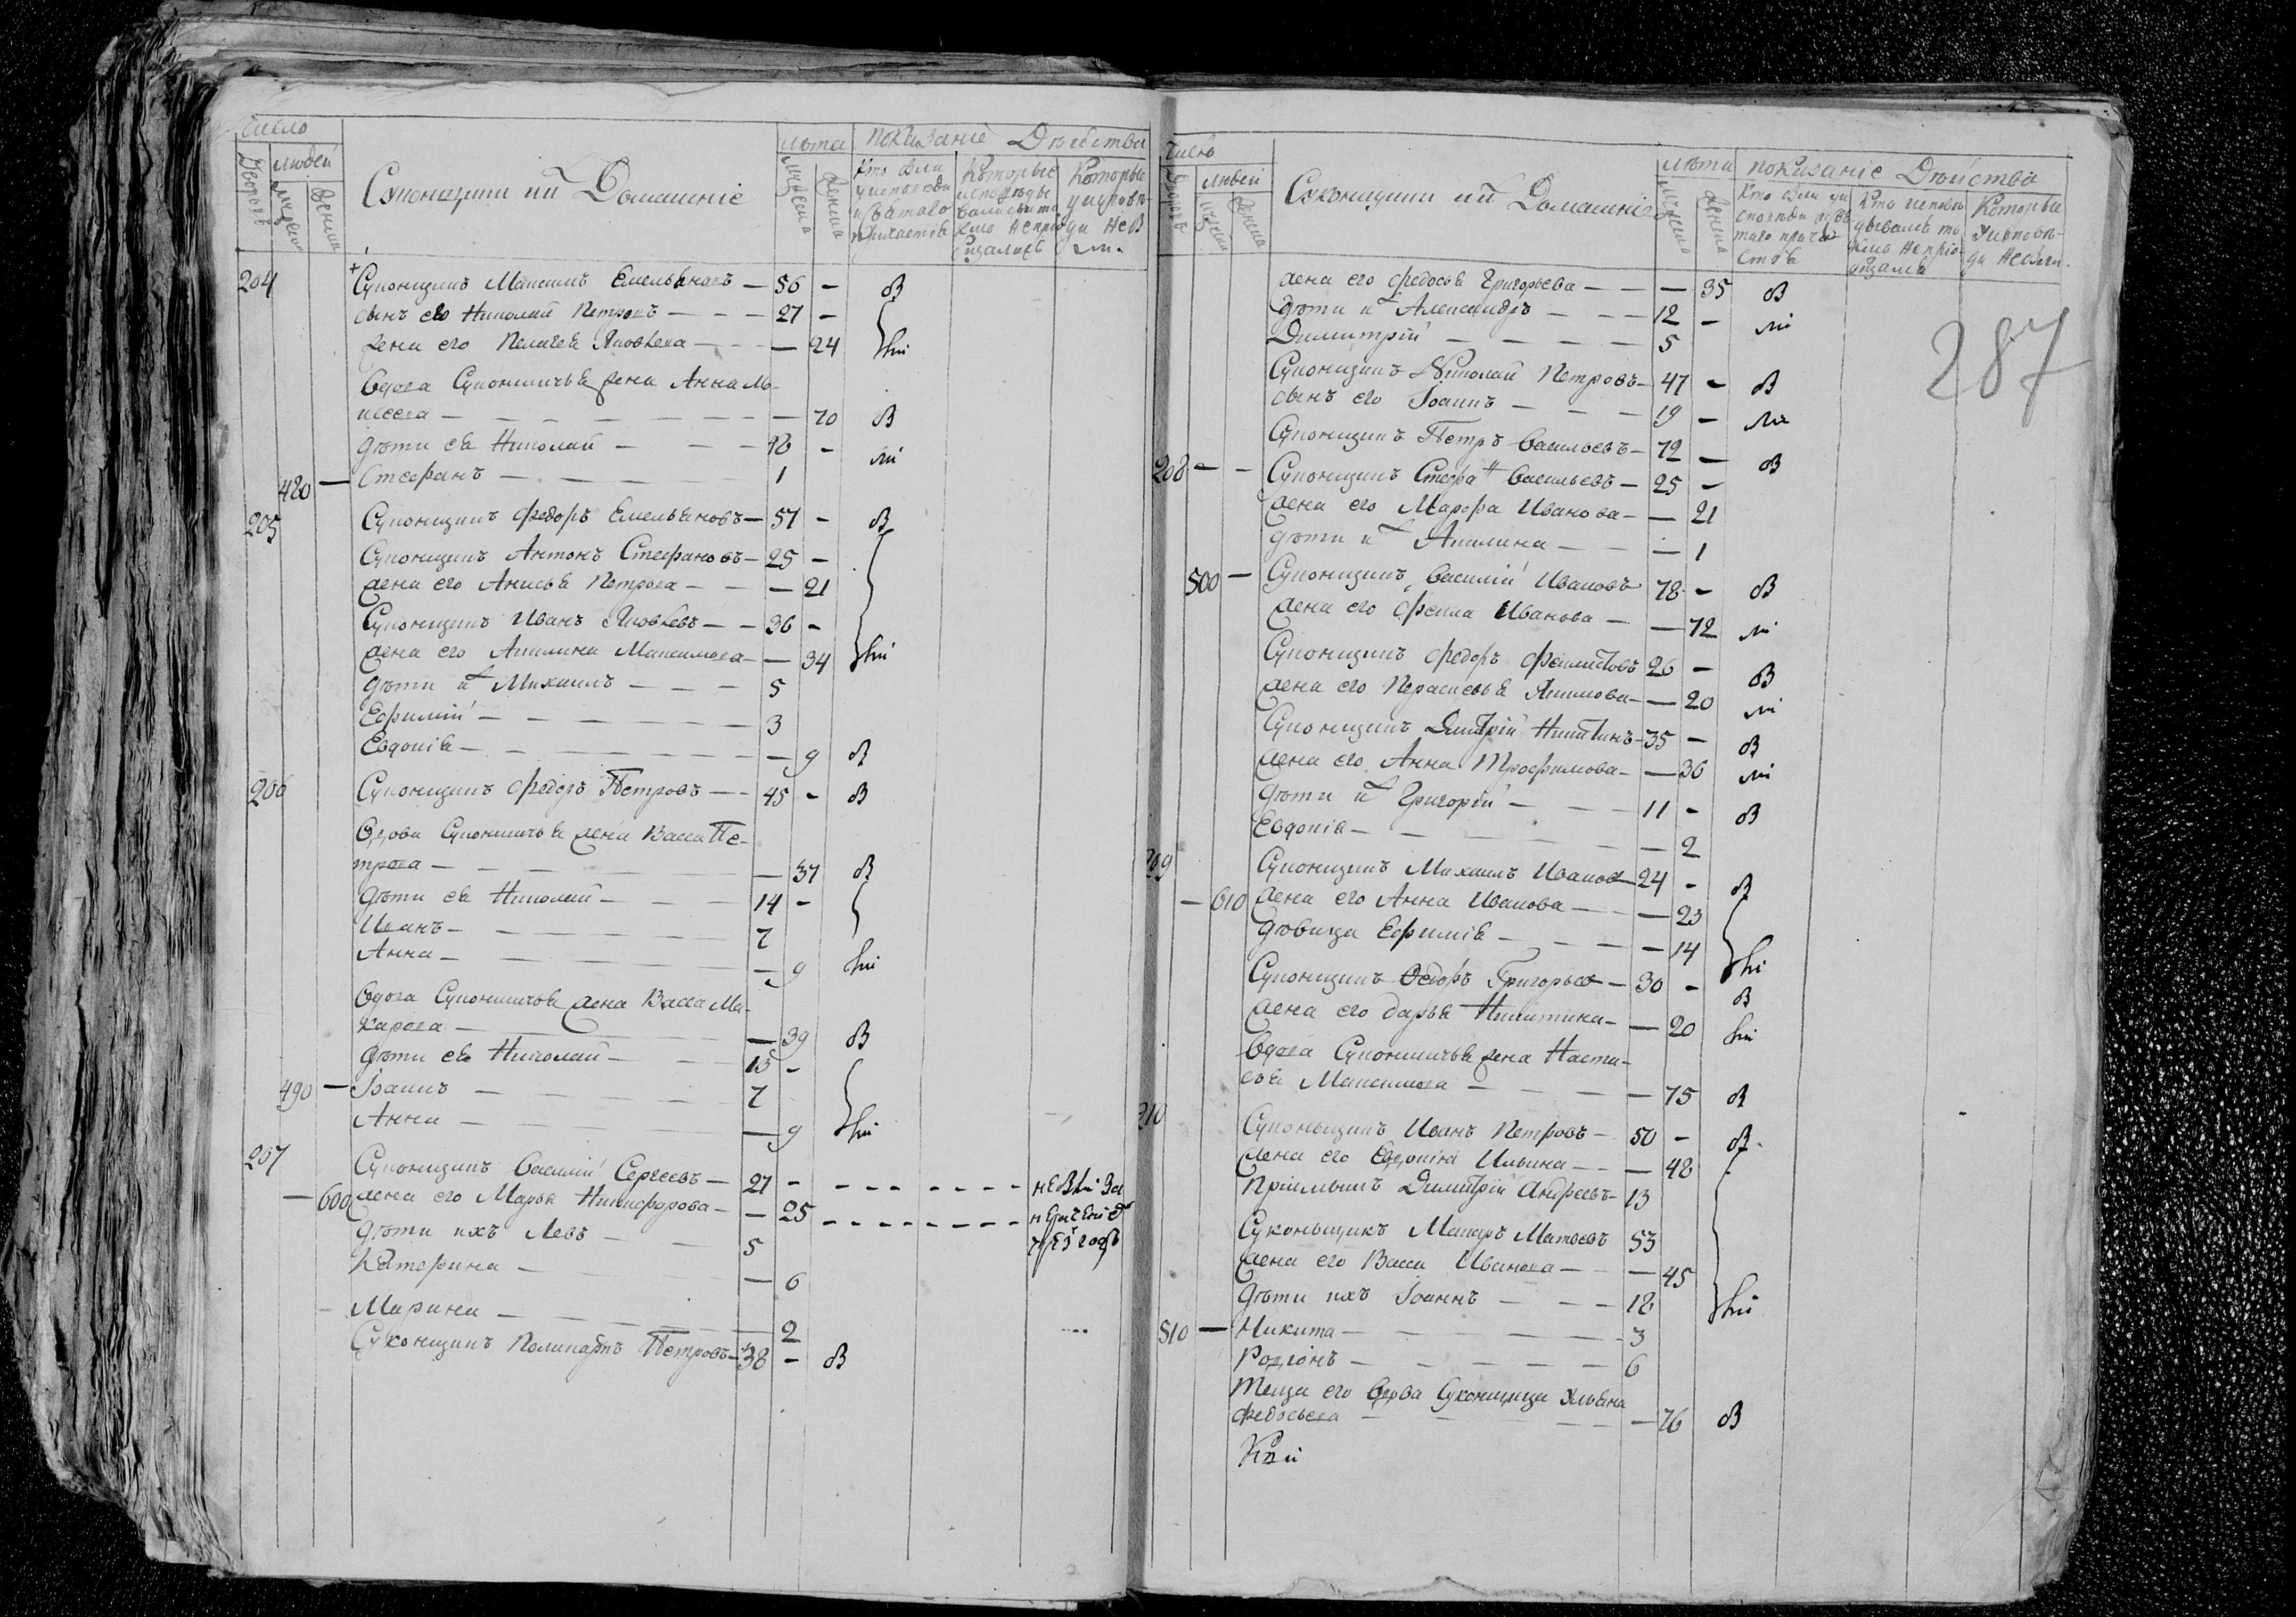 Число
людей
Дворовъ
мужеска
женска
Суконщики ии Домашніе
лѣта
мужеска
женска
показаніе Дѣйства
Кто были у исповѣди и святаго причастія
Которые исповѣдывались а токмо не приобщались
Которые у исповѣди не были
204
Суконщикъ Максимъ Емельяновъ — 56 — В
сынъ его Николай Петровъ — 27 —
жена его Пелагея Яковлева — 24 ли
вдова Суконшичья жена Анна Мо-
исеева — 70 В
дѣти ея Николай — 18 — ли
480 — Стефанъ — 1
205
Суконщикъ Федоръ Емельяновъ — 57 — В
Суконщикъ Антонъ Стефановъ — 25 —
жена его Анисья Петрова — 21
Суконщикъ Иванъ Яковлевъ — 36 —
жена его Акилина Максимова — 34 ли
дѣти ихъ Михаилъ — 5
Ефимій — 3
Евдокія — 9 В
206
Суконщикъ Федоръ Петровъ — 45 — В
Вдова Суконшичья жена Васса Пе-
трова — 37 В
дѣти ея Николай — 14 —
Иванъ — 7
Анна — 9 ли
вдова Суконшичья жена Васса Ма-
карова — 39 В
дѣти ея Николай — 13 —
490 — Іоаннъ — 7
Анна — 9 ли
207
Суконщикъ Василій Сергеевъ — 27 — не были за
— 600 жена его Марья Никифорова — 25
дѣти ихъ Левъ — 5
Катерина — 6
Марина — 2
Суконщикъ Поликарпъ Петровъ — 38 — В
Число
людей
Дворовъ
мужеска
женска
Суконщики ии Домашніе
лѣта
мужеска
женска
показаніе Дѣйства
Кто были у исповѣди и святаго причастія
Кто исповѣдывался а токмо не приобщался
Которые у исповѣди не были
287
жена его Федосья Григорьева — 35 В
дѣти ихъ Александръ — 12 — ли
Димитрій — 5
Суконщикъ Николай Петровъ — 47 — В
сынъ его Іоаннъ — 19 — ли
Суконщикъ Петръ Васильевъ — 72 — В
208 — Суконщикъ Стефанъ Васильевъ — 25 —
жена его Марфа Иванова — 21
дѣти ихъ Акилина — 1
500 — Суконщикъ Василій Ивановъ 78 — В
жена его Фекла Иванова — 72 ли
Суконщикъ Федоръ Филиповъ 26 — В
жена его Парасковья Якимова — 20 ли
Суконщикъ Димитрій Никитинъ — 35 — В
жена его Анна Трофимова — 36 ли
дѣти ихъ Григорій — 11 — В
Евдокія — 2
209
Суконщикъ Михаилъ Ивановъ — 24 — В
— 610 жена его Анна Иванова — 23
дѣвица Ефимія — 14 ли
Суконщикъ Федоръ Григорьевъ — 30 — В
жена его Дарья Никитина — 20 ли
Вдова Суконшичья жена Наста-
сья Максимова — 75 В
210
Суконьщикъ Иванъ Петровъ — 50 — В
жена его Евдокія Ильина — 48
Пріимышъ Димитрій Андреевъ — 13
Суконьщикъ Макаръ Матвеевъ 53
жена его Васса Иванова — 45
дѣти ихъ Іоаннъ — 18 ли
510 — Никита — 3
Родіонъ — 6
Теща его вдова Суконщица Ульяна
Федосьева — 76 В